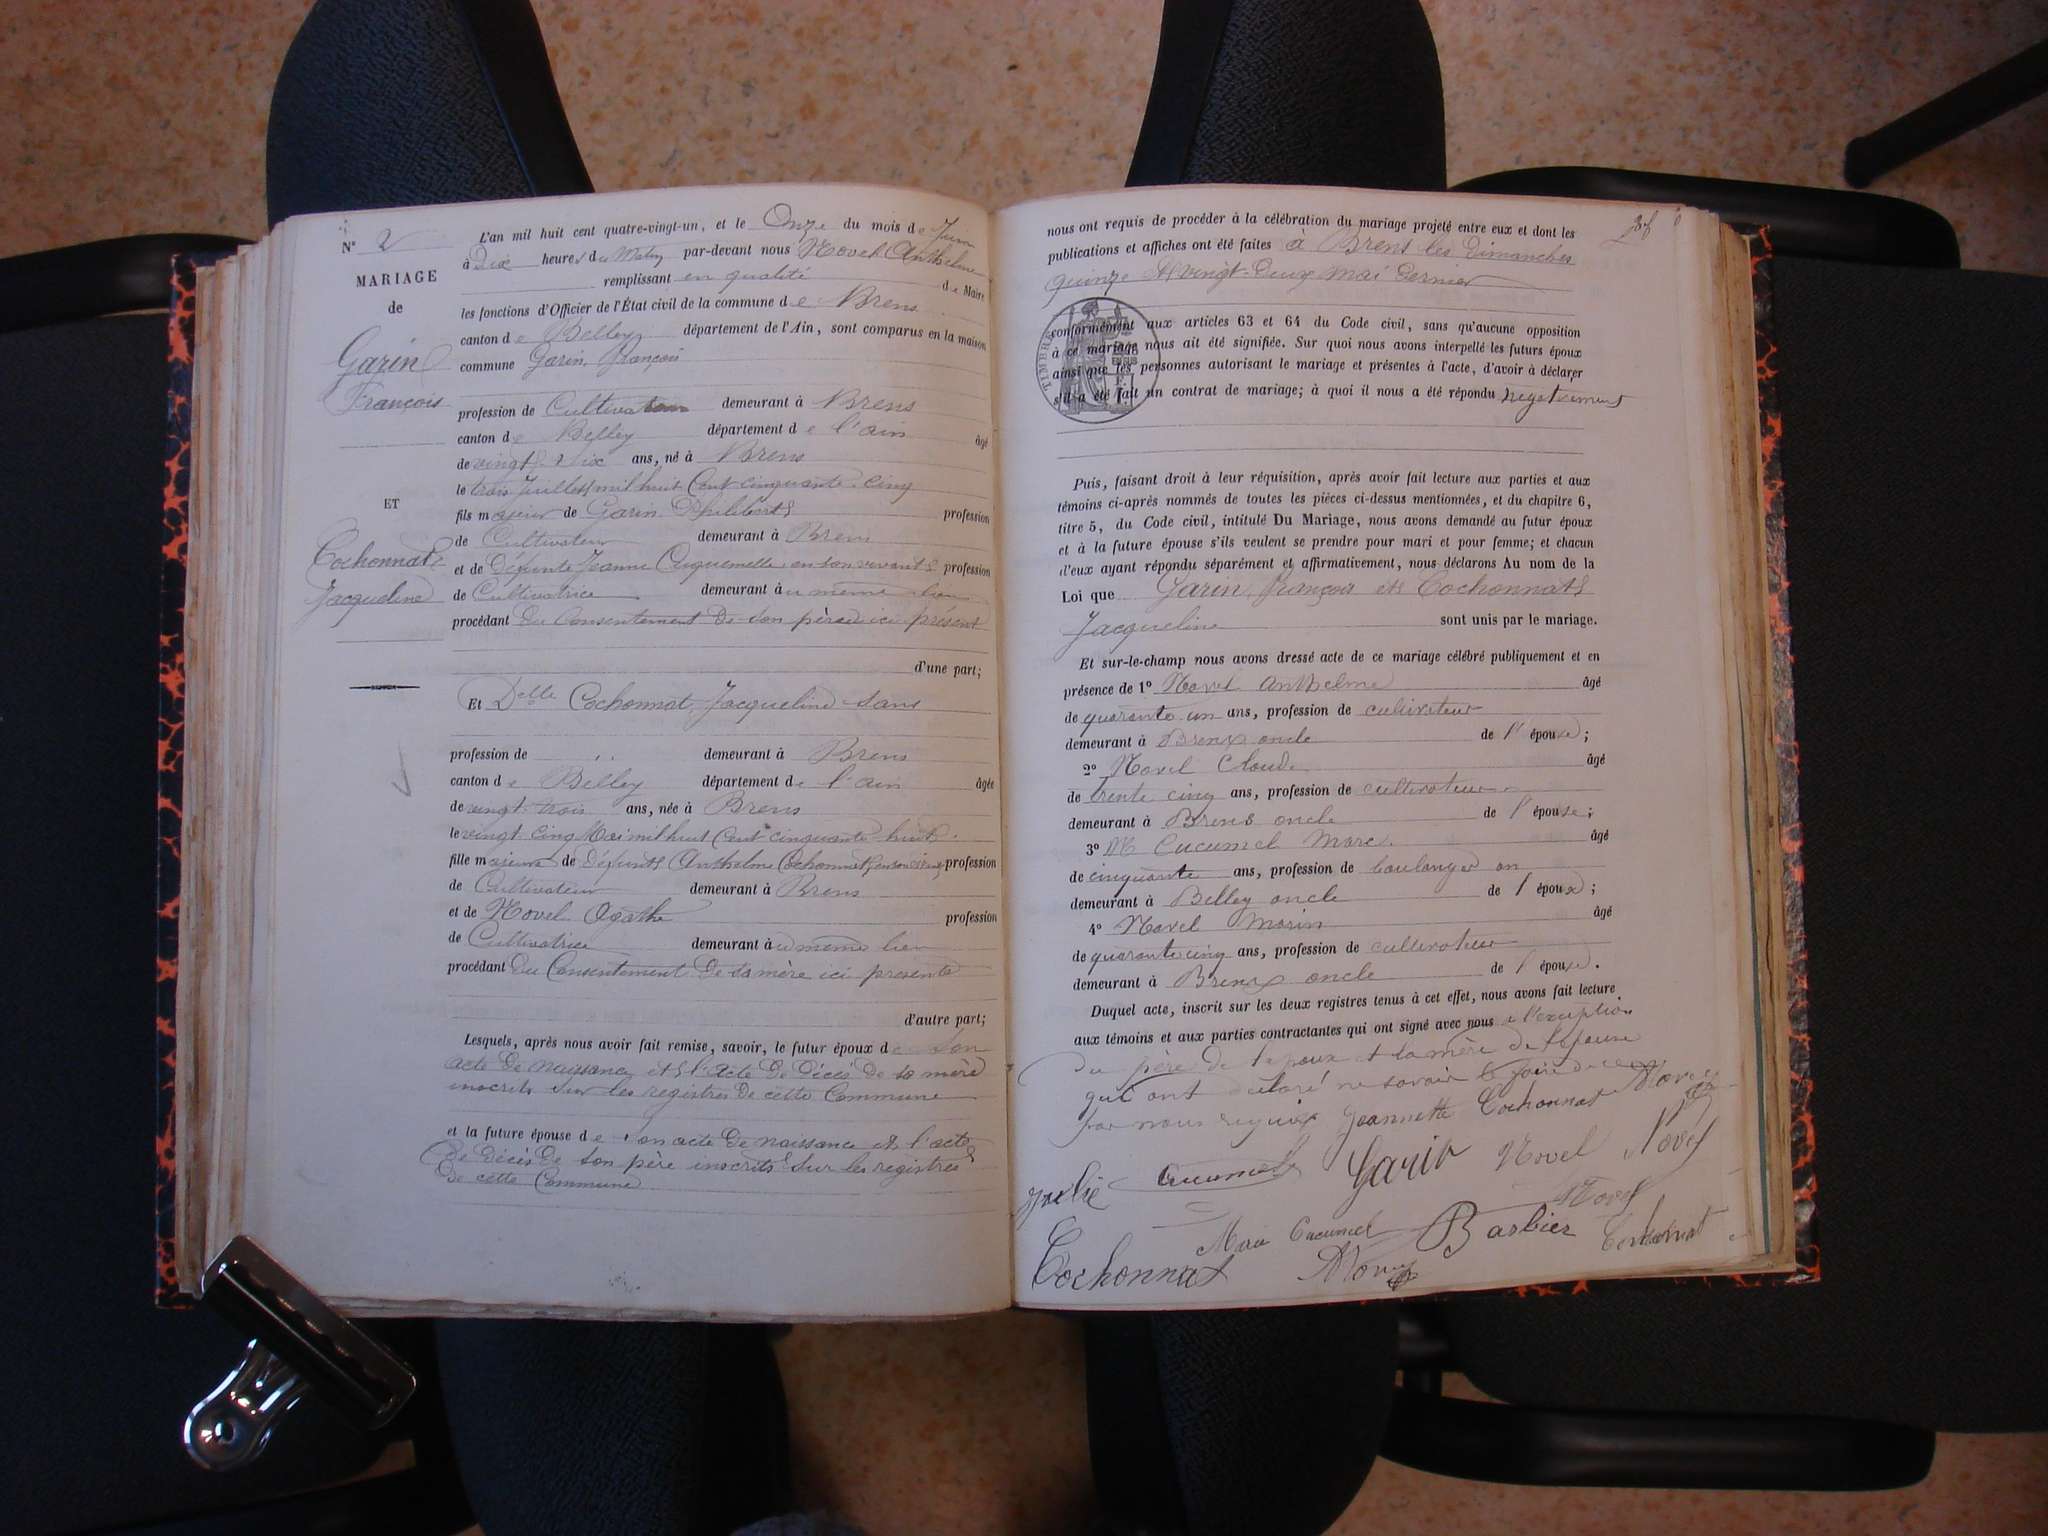 N° 2
MARIAGE
de
Garin
François
ET
Cochonnat
Jacqueline
L'an mil huit cent quatre-vingt-un, et le Onze du mois de Juin
à Dix heures du Matin par-devant nous Novel Anthelme
remplissant en qualité de Maire
les fonctions d'Officier de l'État civil de la commune de Brens
canton de Belley département de l'Ain, sont comparus en la maison
commune Garin, François
profession de Cultivateur demeurant à Brens
canton de Belley département de l'ain âgé
de vingt Six ans, né à Brens
le trois Juillet mil huit Cent cinquante-cinq
fils majeur de Garin Philibert profession
de Cultivateur demeurant à Brens
et de Défunte Jeanne en son vivant profession
de Cultivatrice demeurant au même lieu
procédant du Consentement de son père ici présent
d'une part;
Et Delle Cochonnat, Jacqueline sans
profession de demeurant à Brens
canton de Belley département de l'ain âgée
de vingt-trois ans, née à Brens
le vingt-cinq Mai mil huit Cent cinquante-huit
fille majeure de défunt Anthelme Cochonnat, en son vivant profession
de Cultivateur demeurant à Brens
et de Novel Agathe profession
de Cultivatrice demeurant au même lieu
procédant du Consentement de sa mère ici présente
d'autre part;
Lesquels, après nous avoir fait remise, savoir, le futur époux de son
acte de naissance et l'acte de décès de sa mère
inscrits sur les registres de cette Commune
et la future épouse de son acte de naissance et l'acte
de décès de son père inscrits sur les registres
de cette Commune
nous ont requis de procéder à la célébration du mariage projeté entre eux et dont les
publications et affiches ont été faites à Brens les Dimanches
quinze et vingt-deux mai dernier
TIMBRE
conformément aux articles 63 et 64 du Code civil, sans qu'aucune opposition
à ce mariage nous ait été signifiée. Sur quoi nous avons interpellé les futurs époux
ainsi que les personnes autorisant le mariage et présentes à l'acte, d'avoir à déclarer
s'il a été fait un contrat de mariage; à quoi il nous a été répondu négativement
Puis, faisant droit à leur réquisition, après avoir fait lecture aux parties et aux
témoins ci-après nommés de toutes les pièces ci-dessus mentionnées, et du chapitre 6,
titre 5, du Code civil, intitulé Du Mariage, nous avons demandé au futur époux
et à la future épouse s'ils veulent se prendre pour mari et pour femme; et chacun
d'eux ayant répondu séparément et affirmativement, nous déclarons Au nom de la
Loi que Garin, François et Cochonnat
Jacqueline sont unis par le mariage.
Et sur-le-champ nous avons dressé acte de ce mariage célébré publiquement et en
présence de 1° Novel Anthelme âgé
de quarante-un ans, profession de cultivateur
demeurant à Brens oncle de l'épouse;
2° Novel Claude âgé
de trente cinq ans, profession de cultivateur
demeurant à Brens oncle de l'épouse;
3° M Cucumel Marc âgé
de cinquante ans, profession de boulanger
demeurant à Belley oncle de l'époux;
4° Novel Marin âgé
de quarante cinq ans, profession de cultivateur
demeurant à Brens oncle de l'épouse.
Duquel acte, inscrit sur les deux registres tenus à cet effet, nous avons fait lecture
aux témoins et aux parties contractantes qui ont signé avec nous à l'exception
du père de l'époux et la mère de l'épouse
qui ont déclaré ne savoir le faire de ce Novel
par nous requis Jeannette Cochonnat
Cucumel Garin Novel Novel
Novel
Marie Cucumel Barbier Cochonnat
Cochonnat Novel